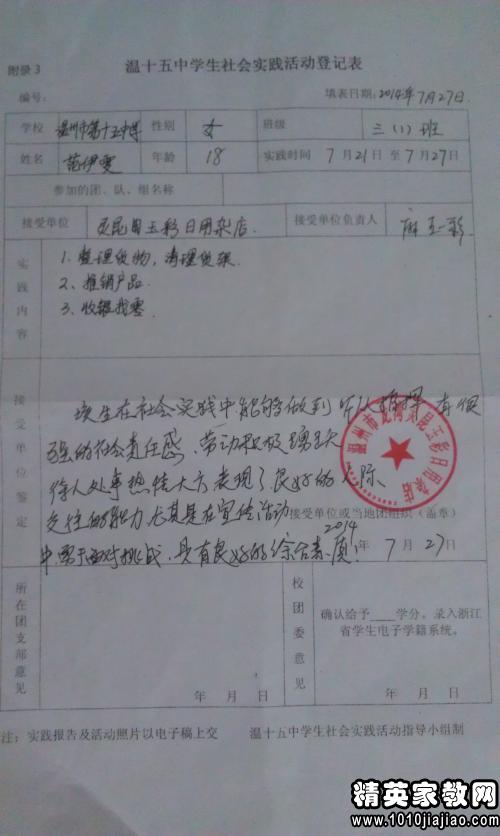 附录 3
温十五中学生社会实践活动登记表
编号:
填表日期: 2014年7月27日.
学校 温州市第十五中学 性别 女 班级 三(1)班
姓名 范伊雯 年龄 18 实践时间 7月21日 至 7月27日
参加的团、队、组名称
接受单位 灵昆自玉彩日用杂店. 接受单位负责人 麻玉彩
实践内容
1. 整理货物, 清理货架.
2、推销产品.
3、收银找零
接受单位鉴定
该生在社会实践中能够做到听从指挥 有很
强的社会责任感、劳动积极踊跃
待人处事热情大方表现了良好的人际
交往的能力尤其是在宣传活动
接受单位或当地团组织(盖章)
中勇于面对挑战、具有良好的综合素质!
2014年 7月 27日
温州市龙湾灵昆玉彩日用杂店
所在团支部意见
年 月 日
校团委意见
确认给予____学分。录入浙江
省学生电子学籍系统。
年 月 日
注: 实践报告及活动照片以电子稿上交 温十五中学生社会实践活动指导小组制
精英家教网
www.1010jiajiao.com